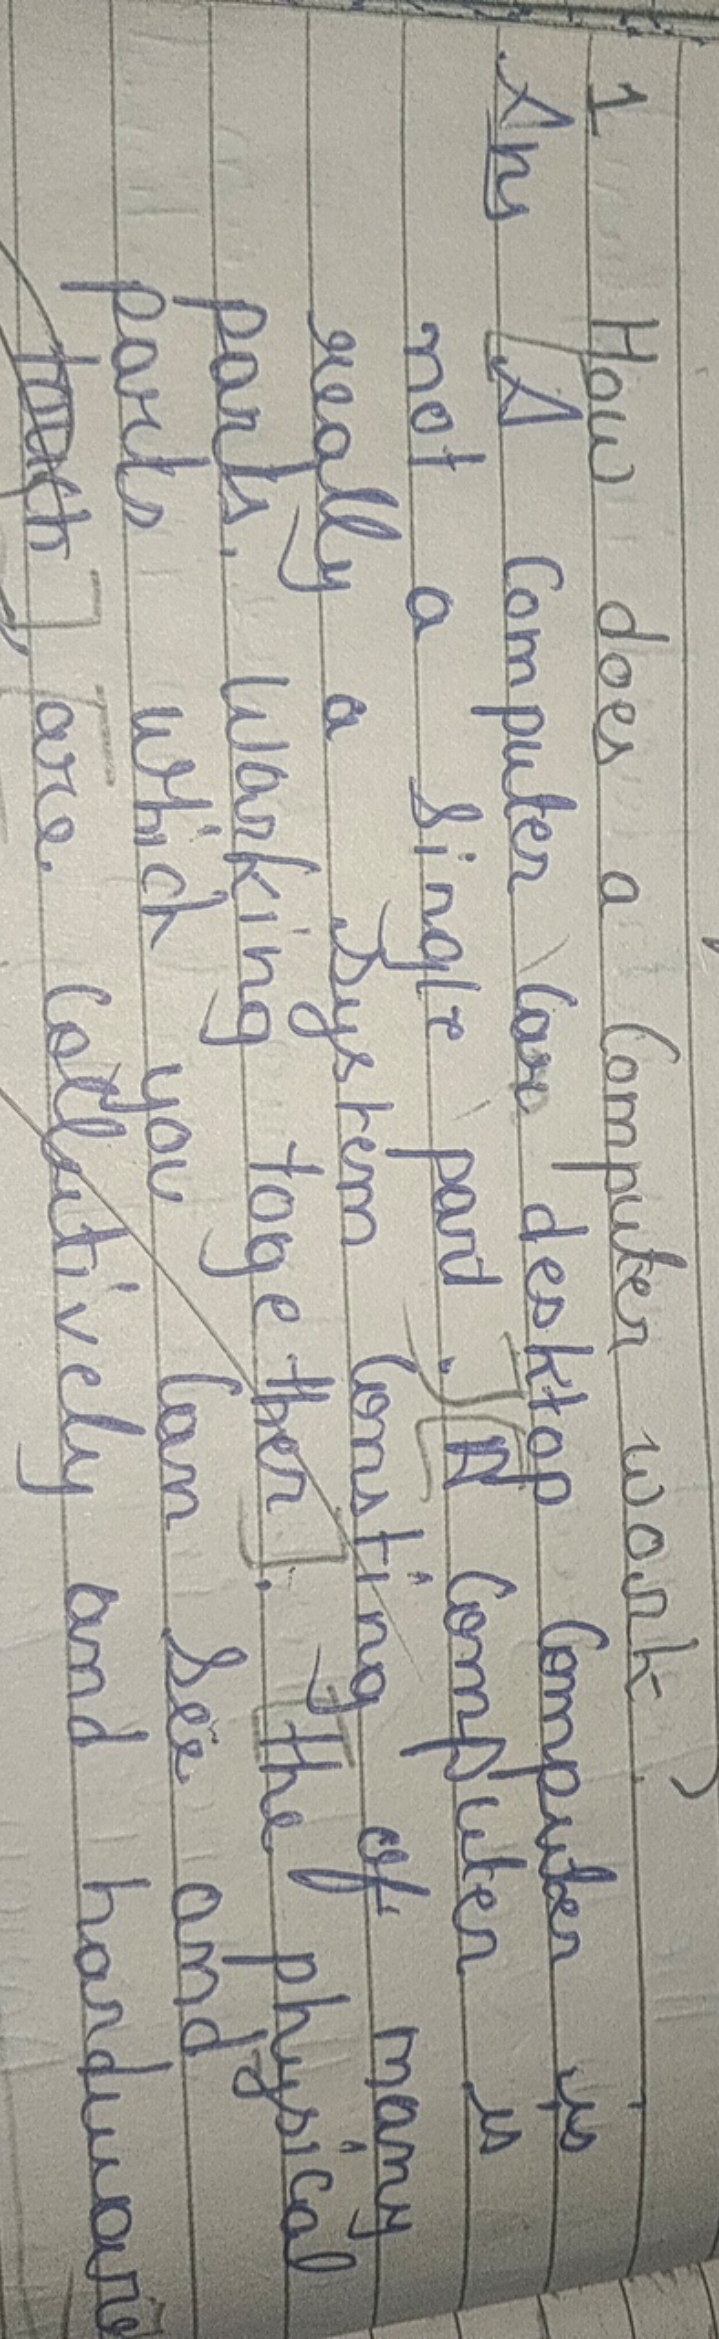 1 How does a Computer work
Ans A Computer desktop Computer is
not a Single part. A Computer is
really a System Consting of many
parts. Working together. The physical
parts which you Can See and
touch are Collutively and harduware